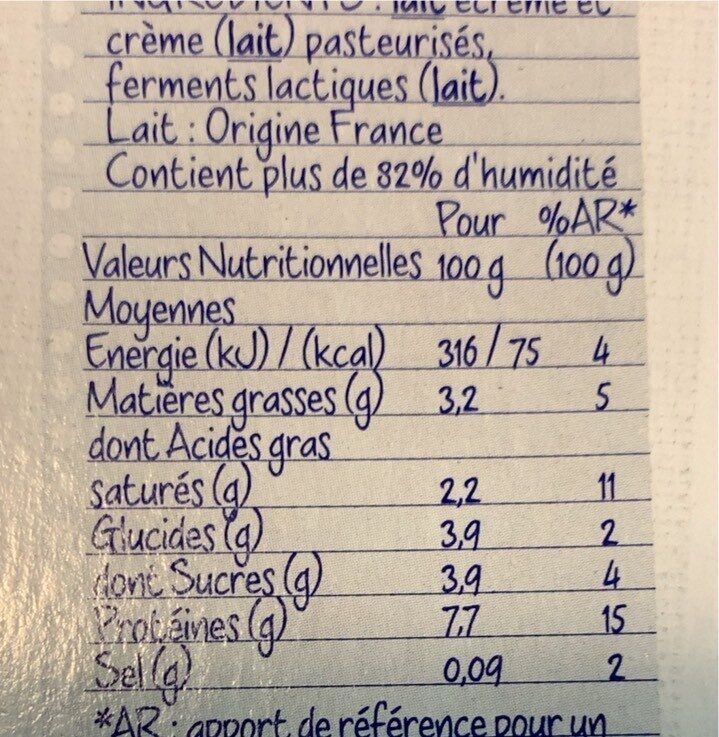 INGRÉDIENTS : lait écrémé et
crème (lait) pasteurisés,
ferments lactiques (lait).
Lait : Origine France
Contient plus de 82% d'humidité
Pour %AR*
Valeurs Nutritionnelles 100 g (100 g)
Moyennes
Energie (kJ) / (kcal) 316 / 75 4
Matières grasses (g) 3,2 5
dont Acides gras
saturés (g) 2,2 11
Glucides (g) 3,9 2
dont Sucres (g) 3,9 4
Protéines (g) 7,7 15
Sel (g) 0,09 2
*AR : apport de référence pour un